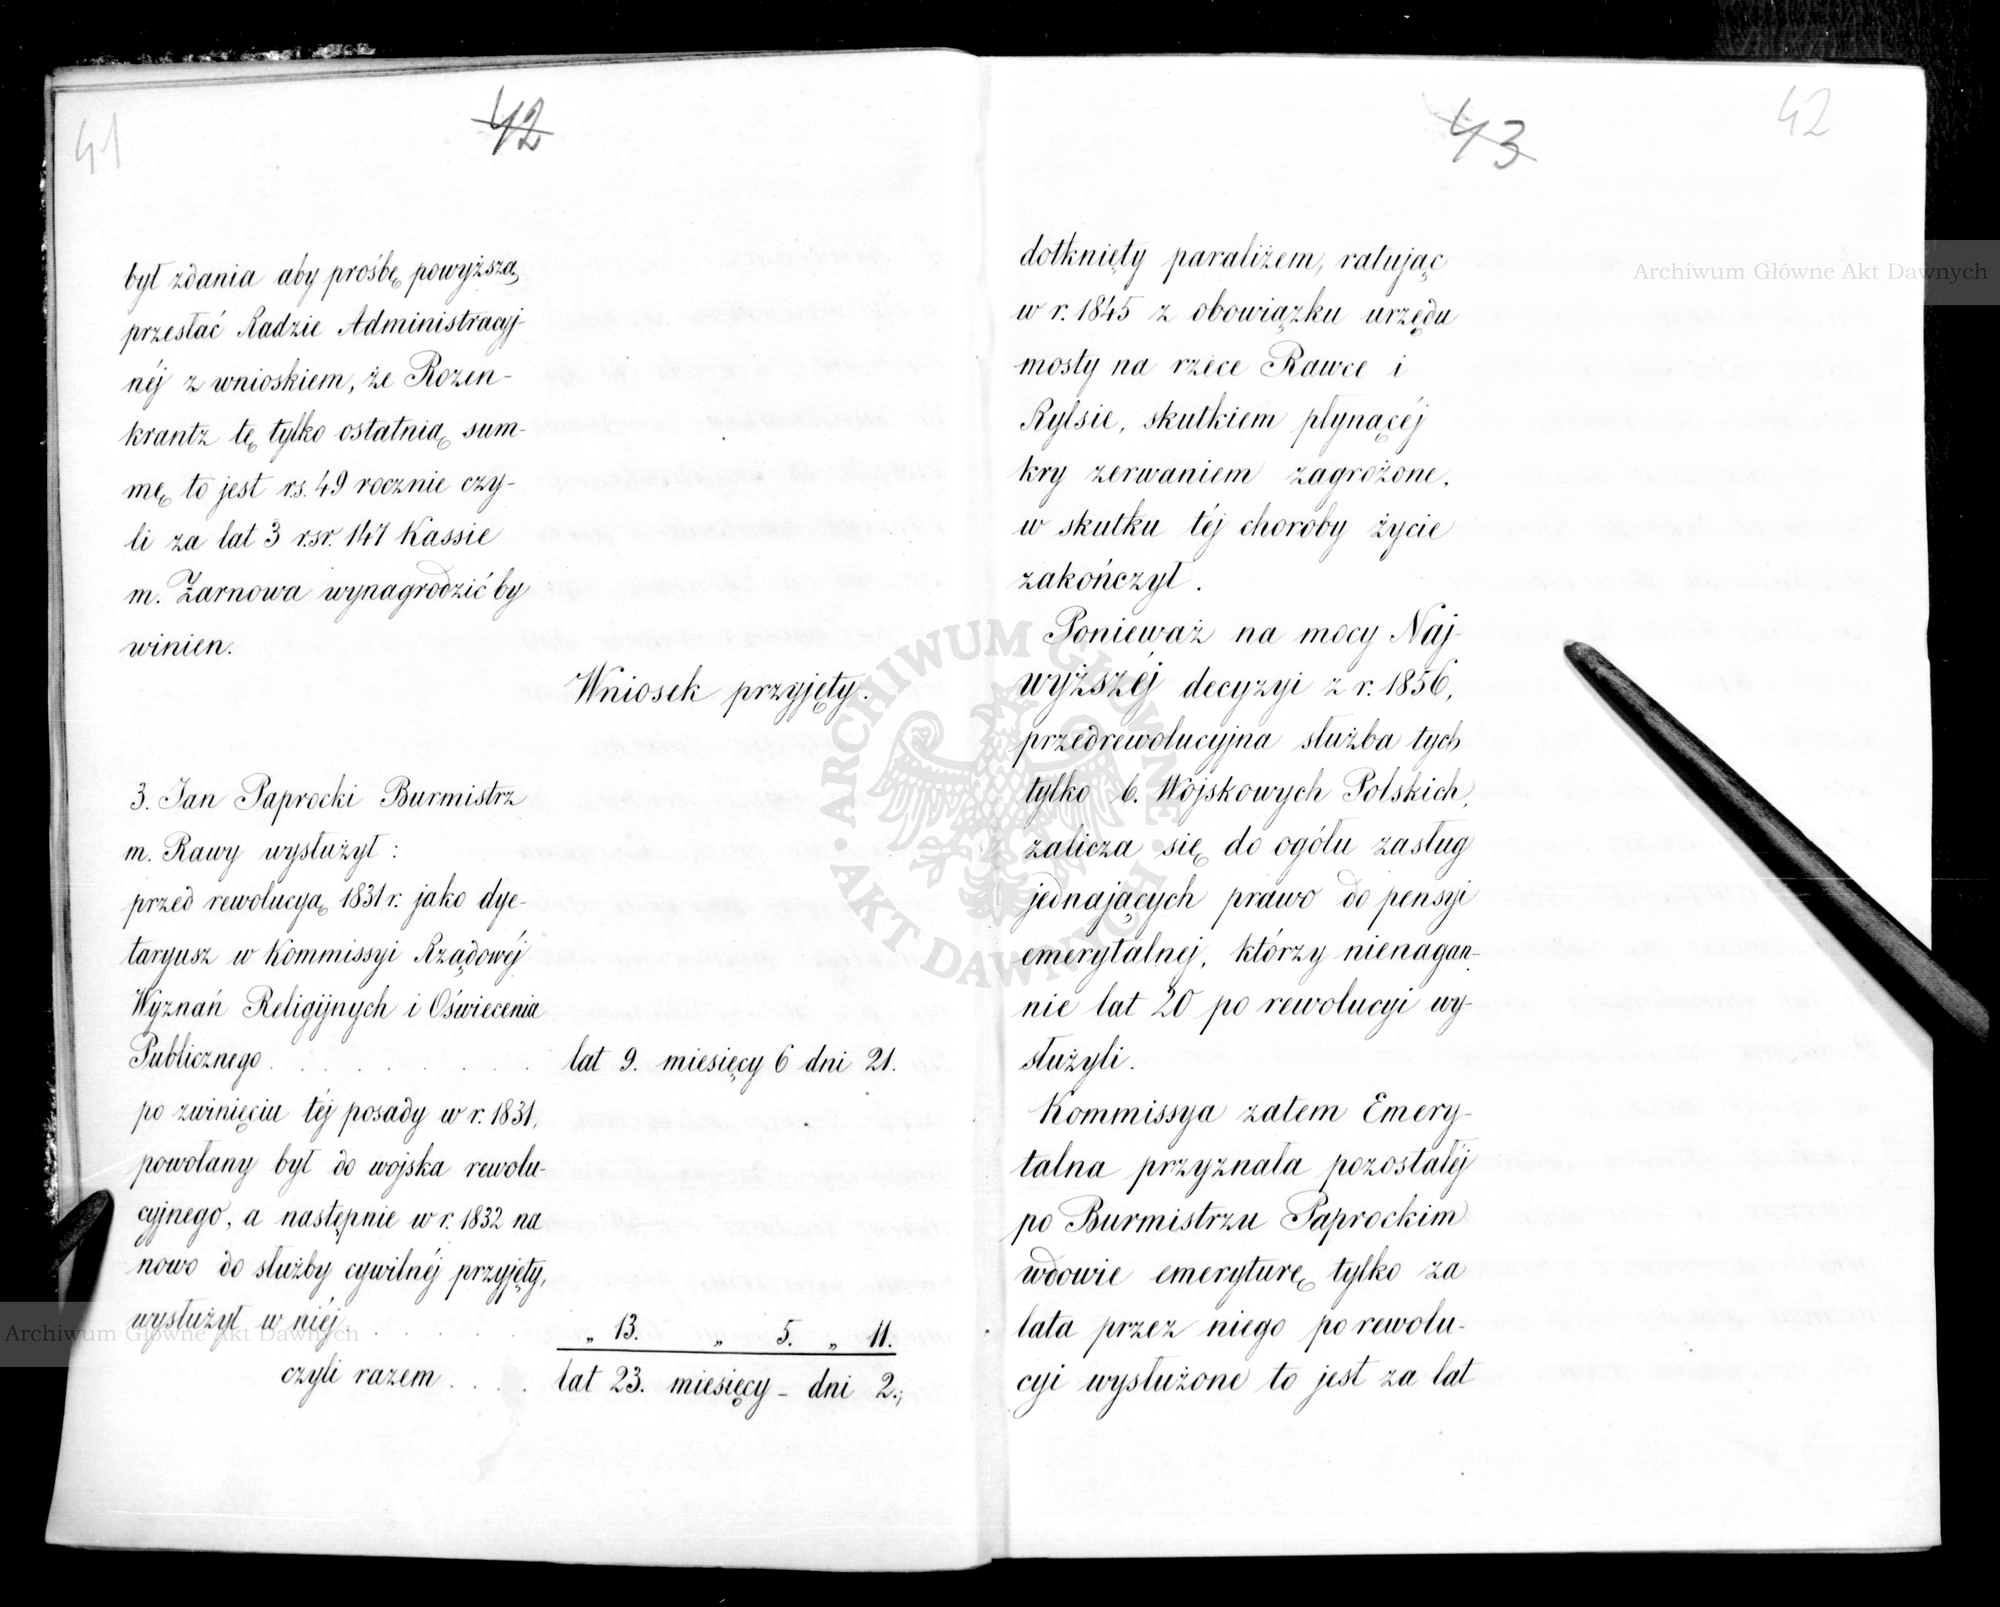 41
42
był zdania aby prośbę powyższą
przesłać Radzie Administracyj-
néj z wnioskiem, że Rozen-
krantz tę tylko ostatnią sum-
mę to jest rs. 49 rocznie czy-
li za lat 3 rsr. 147 Kassie
m. Żarnowa wynagrodzić by
winien.
Wniosek przyjęty.
3. Jan Paprocki Burmistrz
m. Rawy wysłużył:
przed rewolucyą 1831 r. jako dye-
taryusz w Kommissyi Rządowéj
Wyznań Religijnych i Oświecenia
Publicznego . . . . . . . . . lat 9. miesięcy 6 dni 21.
po zwinięciu téj posady w r. 1831,
powołany był do wojska rewolu-
cyjnego, a następnie w r. 1832 na
nowo do służby cywilnéj przyjęty,
wysłużył w niéj . . . . . . . „ 13. „ 5. „ 11.
czyli razem . . . . lat 23. miesięcy - dni 2.;
43
42
dotknięty paraliżem, ratując
w r. 1845 z obowiązku urzędu
mosty na rzece Rawce i
Rylsie, skutkiem płynącéj
kry zerwaniem zagrożone.
w skutku téj choroby życie
zakończył.
Ponieważ na mocy Naj-
wyższéj decyzyi z r. 1856,
przedrewolucyjna służba tych
tylko b. Wojskowych Polskich,
zalicza się do ogółu zasług
jednających prawo do pensyi
emerytalnej, którzy nienagan-
nie lat 20 po rewolucyi wy-
służyli.
Kommissya zatem Emery-
talna przyznała pozostałéj
po Burmistrzu Paprockim
wdowie emeryturę tylko za
lata przez niego po rewolu-
cyi wysłużone to jest za lat
Archiwum Główne Akt Dawnych
ARCHIWUM GŁÓWNE
AKT DAWNYCH
Archiwum Główne Akt Dawnych